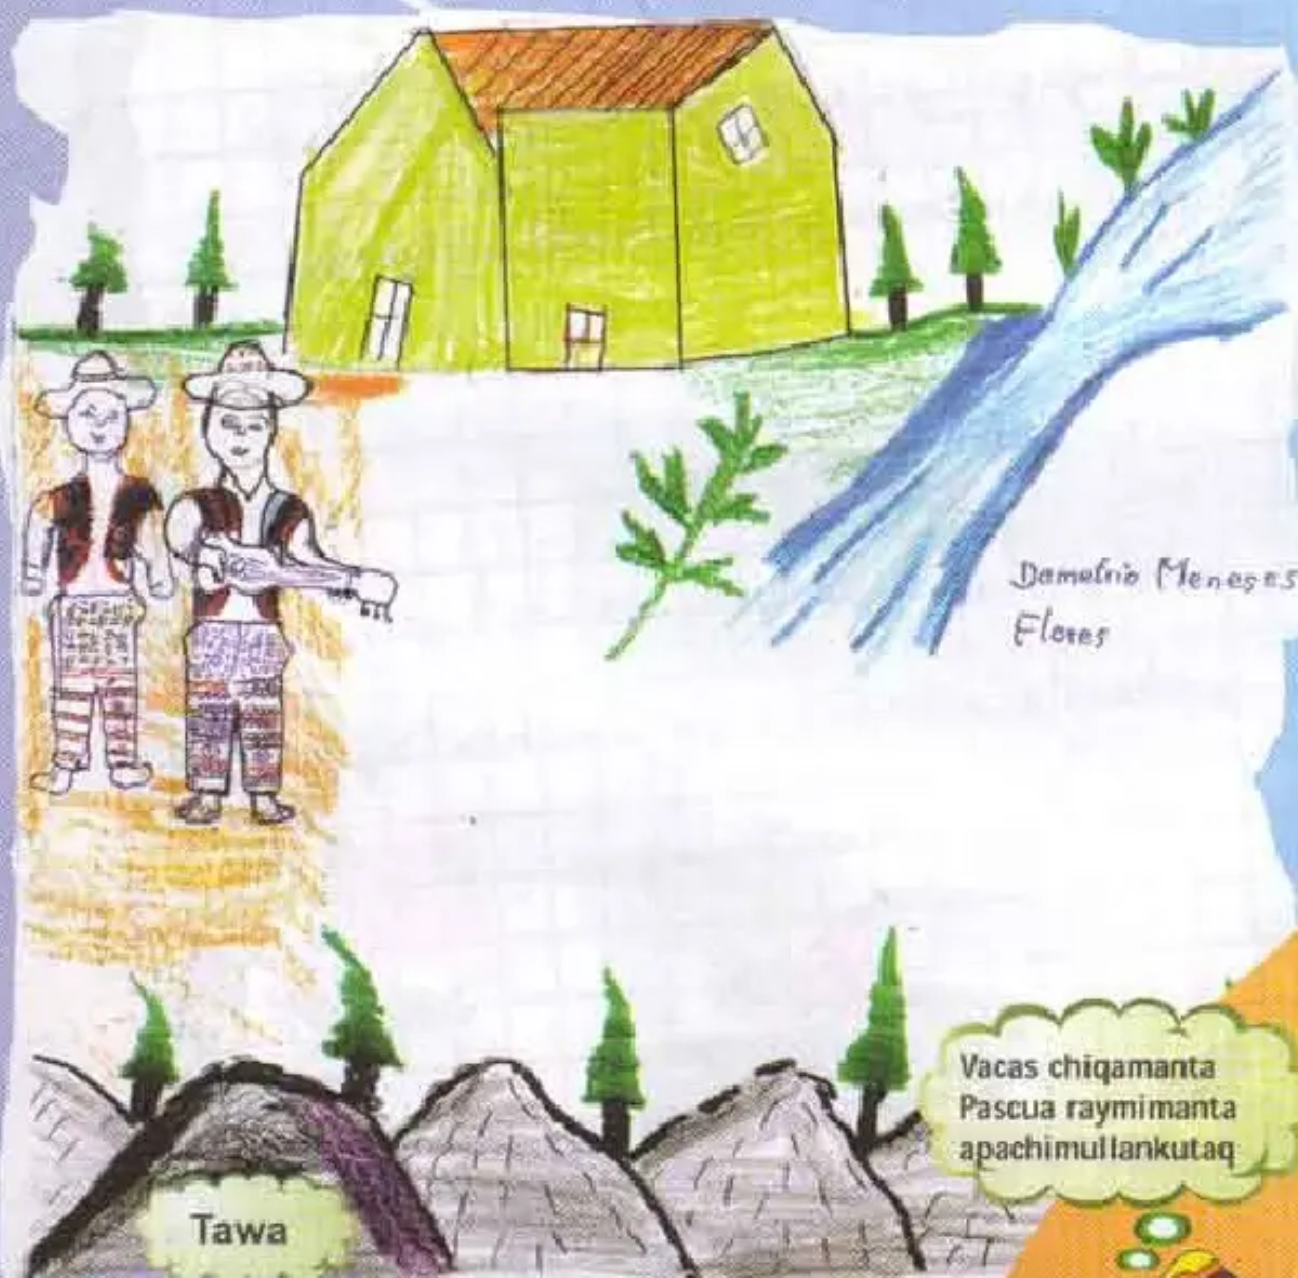 Dametrio Meneses
Flores
Vacas chiqamanta
Pascua raymimanta
apachimullankutaq
Tawa